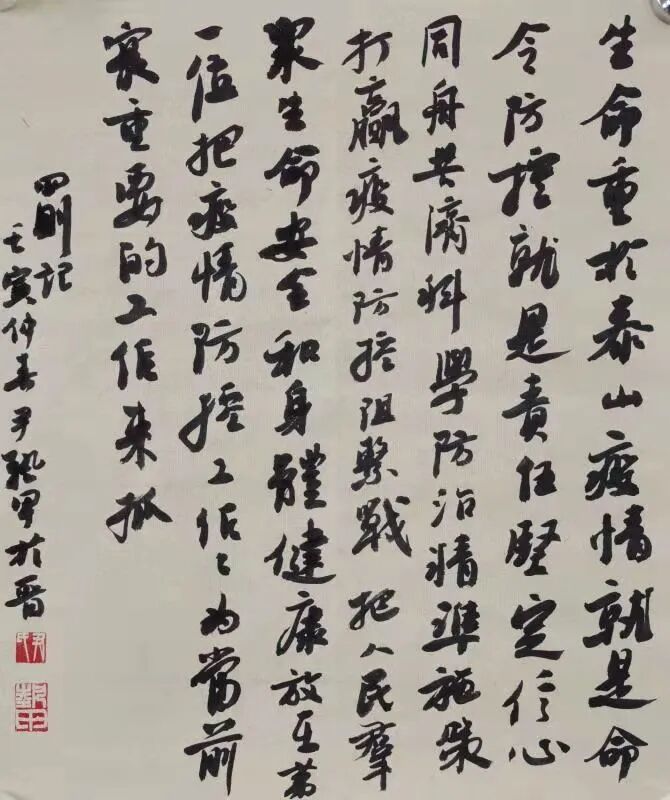 生命重於泰山疫情就是命
令防控就是責任堅定信心
同舟共濟科學防治精準施策
打贏疫情防控阻擊戰把人民羣
衆生命安全和身體健康放在第
一位把疫情防控工作〻為當前
最重要的工作來抓
四則記
壬寅仲春尹甲於晋